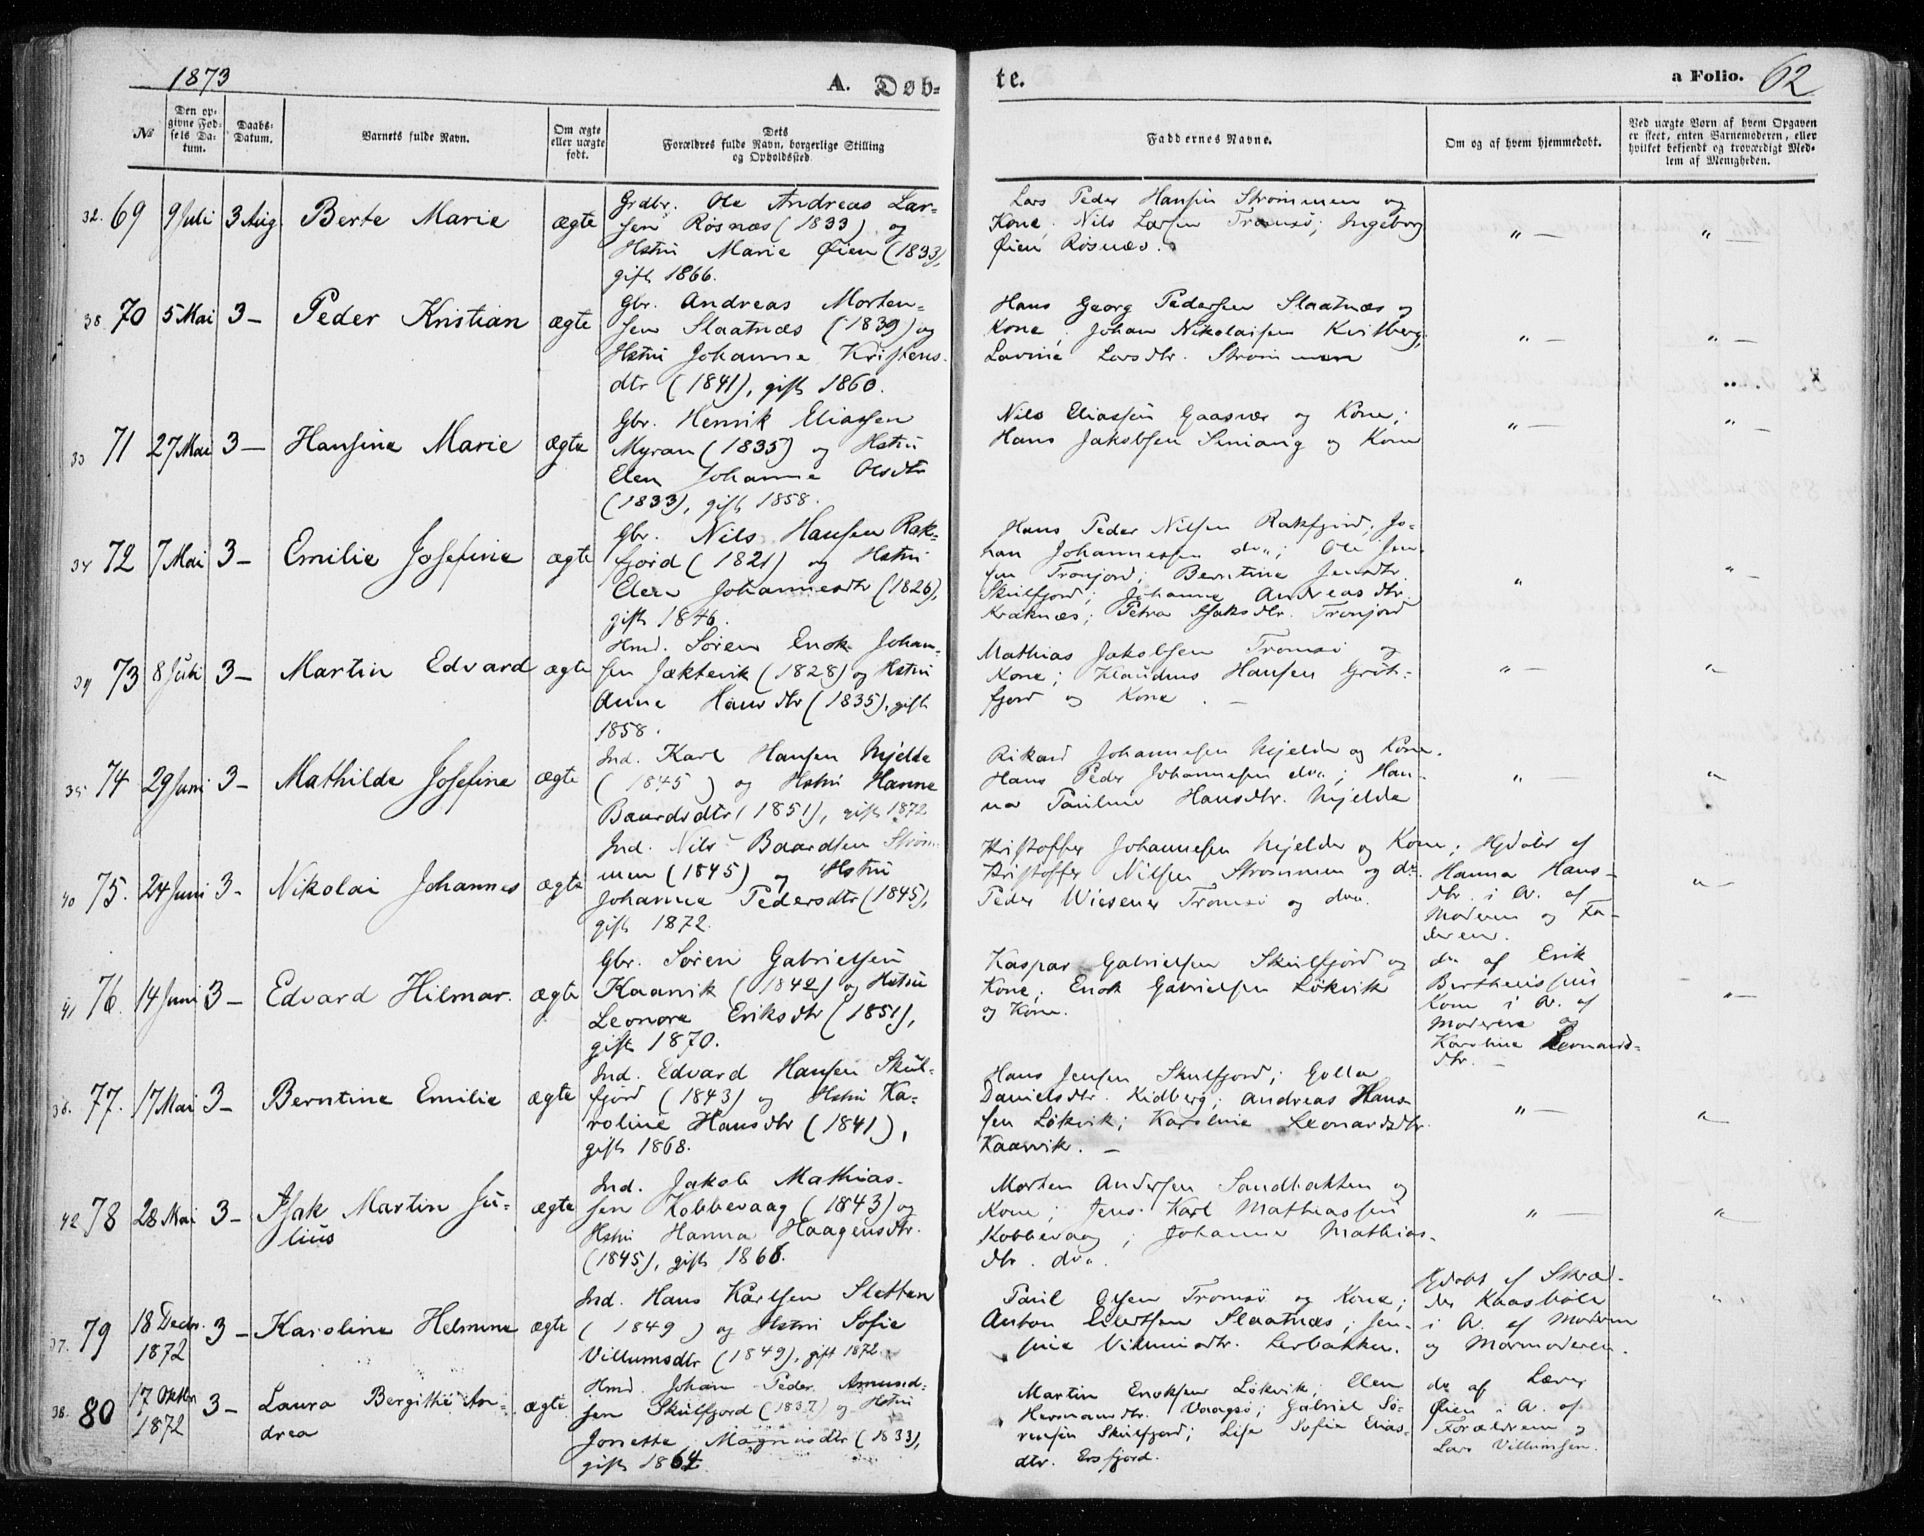 1873
A. Døb-
te.
a Folio. 62
№
Den op-
givne Fød-
sels Da-
tum.
Daabs-
Datum.
Barnets fulde Navn.
Om ægte
eller uægte
født.
Dets
Forældres fulde Navn, borgerlige Stilling
og Opholdssted.
Faddernes Navne.
Om og af hvem hjemmedøbt.
Ved uægte Børn af hvem Opgaven
er skeet, enten Barnemoderen, eller
hvilket bekjendt og troværdigt Med-
lem af Menigheden.
32. 69 9 Juli 3 Aug. Berte Marie ægte
Grdbr. Ole Andreas Lar-
sen Røsnæs (1833) og
Hstru Marie Øien (1833),
gift 1866.
Lars Peder Hansen Strømmen og
Kone, Nils Larsen Tromsø; Ingeborg
Øien Røsnæs.
" — " —
38. 70 5 Mai 3 — Peder Kristian ægte
Gbr. Andreas Morten-
sen Slaatnæs (1839) og
Hstru Johanne Kristens-
dtr (1841), gift 1860.
Hans Georg Pedersen Slaatnæs og
Kone, Johan Nikolaisen Kvitberg,
Lavine Larsdtr. Strømmen
" — " —
33 71 27 Mai 3 — Hansine Marie ægte
Gbr. Henrik Eliassen
Myran (1835) og Hstru
Elen Johanne Olsdtr
(1833), gift 1858.
Nils Eliassen Gaasvær og Kone;
Hans Jakobsen Simang og Kone
" — " —
34 72 7 Mai 3 — Emilie Josefine ægte
Gbr. Nils Hansen Rak-
fjord (1821) og Hstru
Elen Johannesdtr (1826),
gift 1846.
Hans Peder Nilsen Rakfjord; Jo-
han Johannessen do.; Ole Jen-
sen Tronjord; Berntine Jensdtr.
Skulfjord; Johanne Andreasdtr.
Kraknæs; Petra Isaksdtr. Tronjord
" " —
39 73 8 Juli 3 — Martin Edvard ægte
Hmd. Søren Enok Johan-
sen Jæktevik (1828) og Hstru
Anne Hansdtr (1835), gift
1858.
Mathias Jakobsen Tromsø og
Kone; Klaudius Hansen Grøt-
fjord og Kone. —
" — "
35 74 29 Juni 3 — Mathilde Josefine ægte
Ind. Karl Hansen Mjelde
(1845) og Hstru Hanne
Baardsdtr (1851), gift 1872
Rikard Johannesen Mjelde og Kone.
Hans Peder Johannesen do.; Han-
na Pauline Hansdtr. Mjelde
" — "
40 75. 24 Juni 3 — Nikolai Johannes ægte
Ind. Nils Baardsen Strøm-
men (1845) og Hstru
Johanne Pedersdtr (1845),
gift 1872.
Kristoffer Johannesen Mjelde og Kone;
Kristoffer Nilsen Strømmen og do.
Peder Wiesener Tromsø og do.
Hjdøbt af
Hanna Hans-
dtr. i O. af
Moderen og Fa-
deren.
" —
41 76. 14 Juni 3 — Edvard Hilmar. ægte
Gbr. Søren Gabrielsen
Kaarvik (1842) og Hstru
Leonore Eriksdtr (1851),
gift 1870.
Kaspar Gabrielsen Skulfjord og
Kone; Enok Gabrielsen Løkvik
og Kone.
do. af Erik
Bertheussens
Kone i O. af
Moderen og
Karoline Leonards-
dtr. —
" —
36. 77. 17 Mai 3 — Berntine Emilie ægte
Ind. Edvard Hansen Skul-
fjord (1843) og Hstru Ka-
roline Hansdtr (1841),
gift 1868.
Hans Jensen Skulfjord; Golla
Danielsdtr. Kidberg; Andreas Han-
sen Løkvik; Karoline Leonardsdtr.
Kaarvik. —
" — "
42 78 28 Mai 3 — Isak Martin Ju-
lius ægte
Ind. Jakob Mathias-
sen Kobbevaag (1843) og
Hstru Hanna Haagensdtr.
(1845), gift 1868.
Morten Andersen Sandbakken og
Kone; Jens Karl Mathiassen
Kobbevaag; Johanna Mathias-
dtr. do.
" — " —
37. 79 18 Decbr.
1872 3 — Karoline Helmine ægte
Ind. Hans Karlsen Sletten
(1849) og Hstru Sofie
Villumsdtr (1849), gift 1872.
Paul Olsen Tromsø og Kone;
Anton Eilertsen Slaatnæs; Jen-
sine Villumsdtr. Lerbakken.
Hjdøbt af Skræd-
der Kaasbøle
i O. af Moderen
og Mormoderen.
"
38. 80 17 Oktbr
1872 3 — Laura Bergithe An-
drea ægte
Hmd. Johan Peder Amund-
sen Skulfjord (1837) og Hstru
Jonette Magnusdtr (1833),
gift 1864.
Martin Enoksen Løkvik; Elen
Hermansdtr. Vaagsø; Gabriel Sø-
rensen Skulfjord; Lise Sofie Elias-
dtr. Ersfjord.
do. af Lærer
Øien i O. af
Forældrene og
Lars Villumsen.